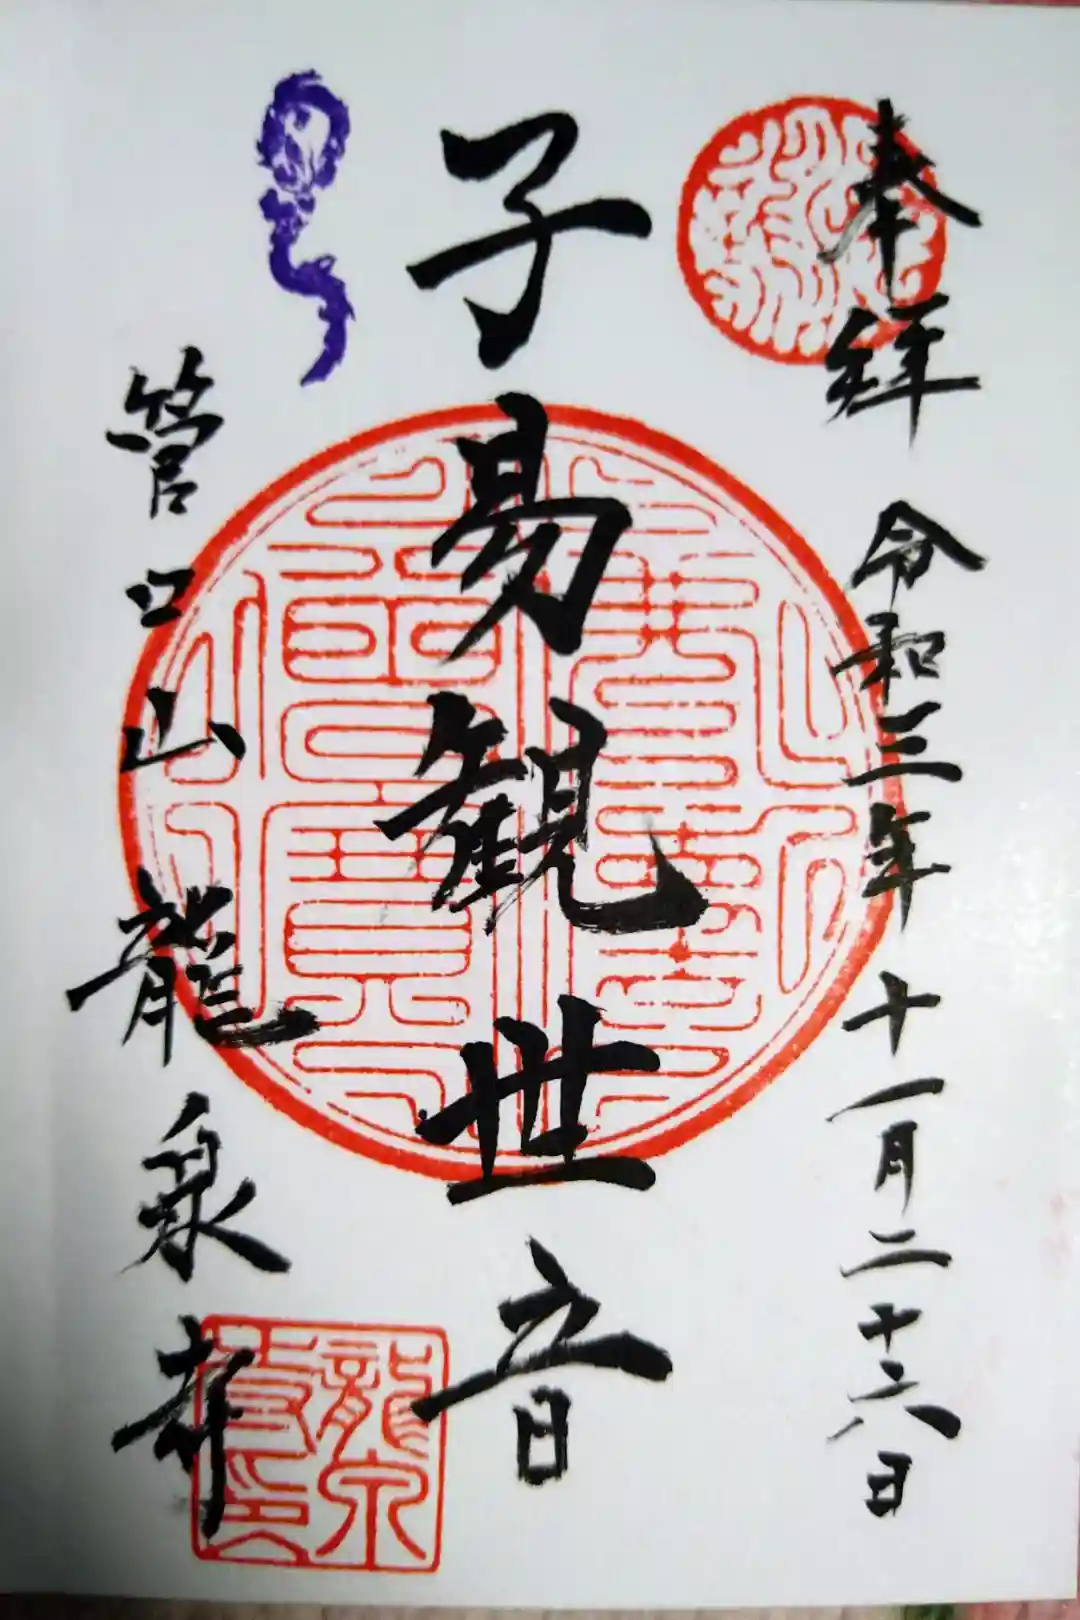 奉拝
令和三年十一月二十六日
子易観世音
管口山龍泉寺
龍泉寺印